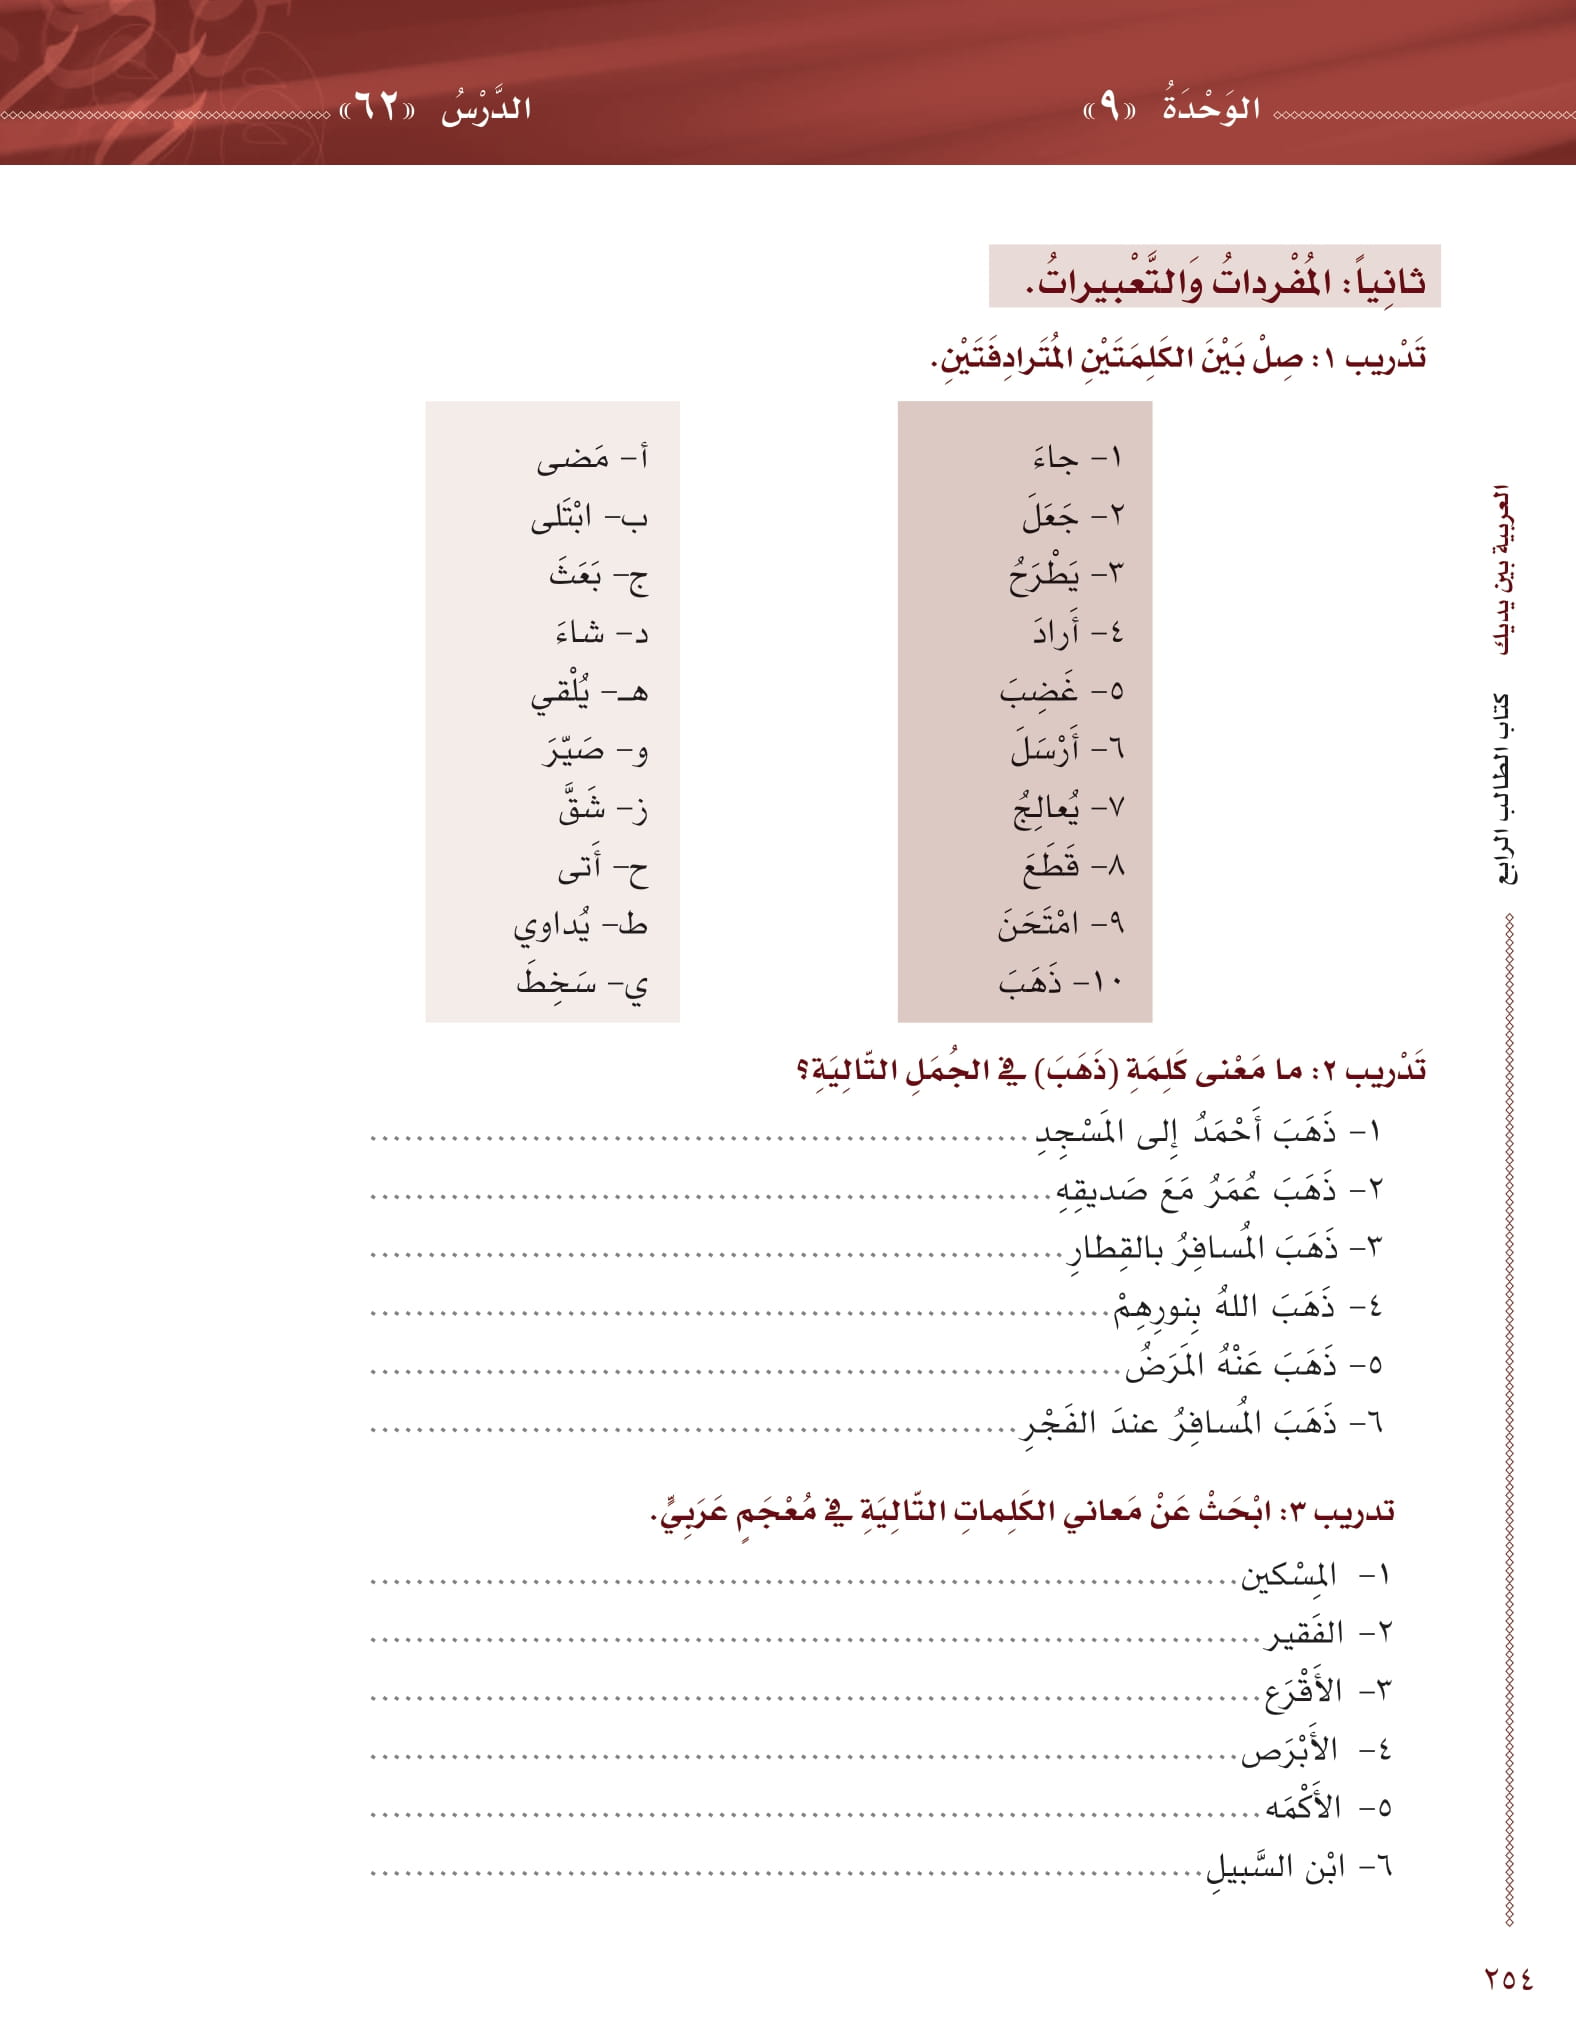 الوَحْدَةُ «٩» الدَّرْسُ «٦٢»
ثانِياً: المُفْرداتُ وَالتَّعْبيراتُ.
تَدْريب ١: صِلْ بَيْنَ الكَلِمَتَيْنِ المُتَرادِفَتَيْنِ.
١- جاءَ
٢- جَعَلَ
٣- يَطْرَحُ
٤- أَرادَ
٥- غَضِبَ
٦- أَرْسَلَ
٧- يُعالِجُ
٨- قَطَعَ
٩- امْتَحَنَ
١٠- ذَهَبَ
أ- مَضى
ب- ابْتَلى
ج- بَعَثَ
د- شاءَ
هـ- يُلْقي
و- صَيّرَ
ز- شَقَّ
ح- أَتى
ط- يُداوي
ي- سَخِطَ
تَدْريب ٢: ما مَعْنى كَلِمَةِ (ذَهَبَ) في الجُمَلِ التّالِيَةِ؟
١- ذَهَبَ أَحْمَدُ إِلى المَسْجِدِ
٢- ذَهَبَ عُمَرُ مَعَ صَديقِهِ
٣- ذَهَبَ المُسافِرُ بالقِطارِ
٤- ذَهَبَ اللهُ بِنورِهِمْ
٥- ذَهَبَ عَنْهُ المَرَضُ
٦- ذَهَبَ المُسافِرُ عندَ الفَجْرِ
تدريب ٣: ابْحَثْ عَنْ مَعاني الكَلِماتِ التّالِيَةِ في مُعْجَمٍ عَرَبِيٍّ.
١- المِسْكين
٢- الفَقير
٣- الأَقْرَع
٤- الأَبْرَص
٥- الأَكْمَه
٦- ابْن السَّبيلِ
العربية بين يديك كتاب الطالب الرابع
٢٥٤